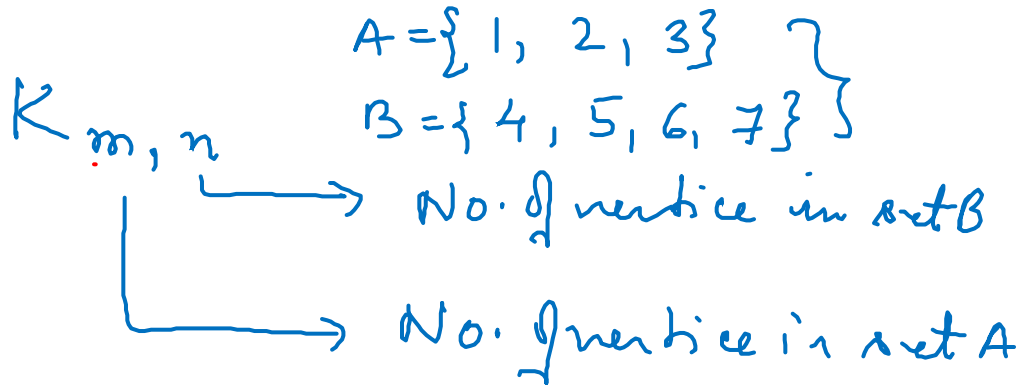 A = { 1, 2, 3 }
B = { 4, 5, 6, 7 }
K m, n
No. of vertice in set B
No. of vertice in set A